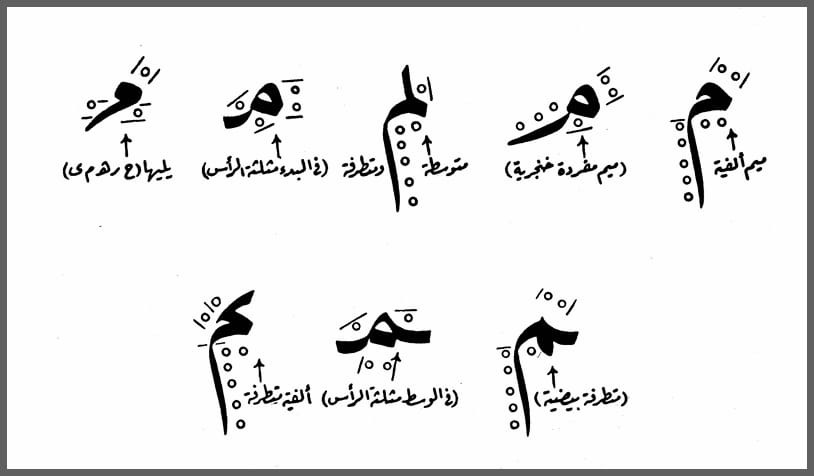 ميم ألفية
(ميم مفردة خنجرية)
متوسطة ومتطرفة
(في البدء مثلثة الرأس)
يليها (ح ر هـ م ى)
(متطرفة بيضية)
(في الوسط مثلثة الرأس)
ألفية متطرفة